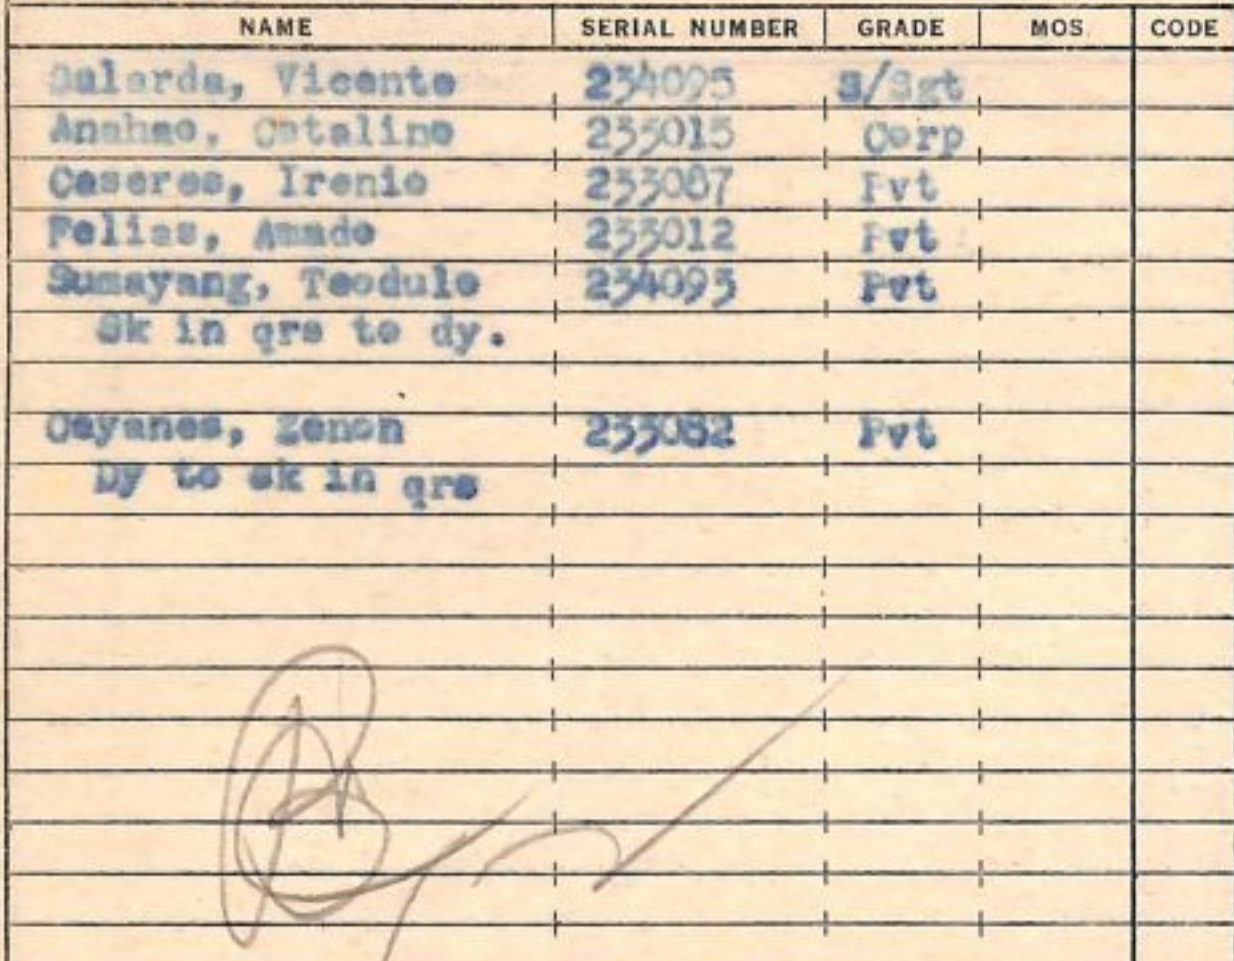 NAME SERIAL NUMBER GRADE MOS CODE
Salarda, Vicente 234095 S/Sgt
Anahao, Catalino 235015 Corp
Caseres, Irenio 233087 Pvt
Felias, Amado 233012 Pvt
Sumayang, Teodulo 234093 Pvt
Sk in qrs to dy.
Cayanes, Zenon 233082 Pvt
Dy to sk in qrs